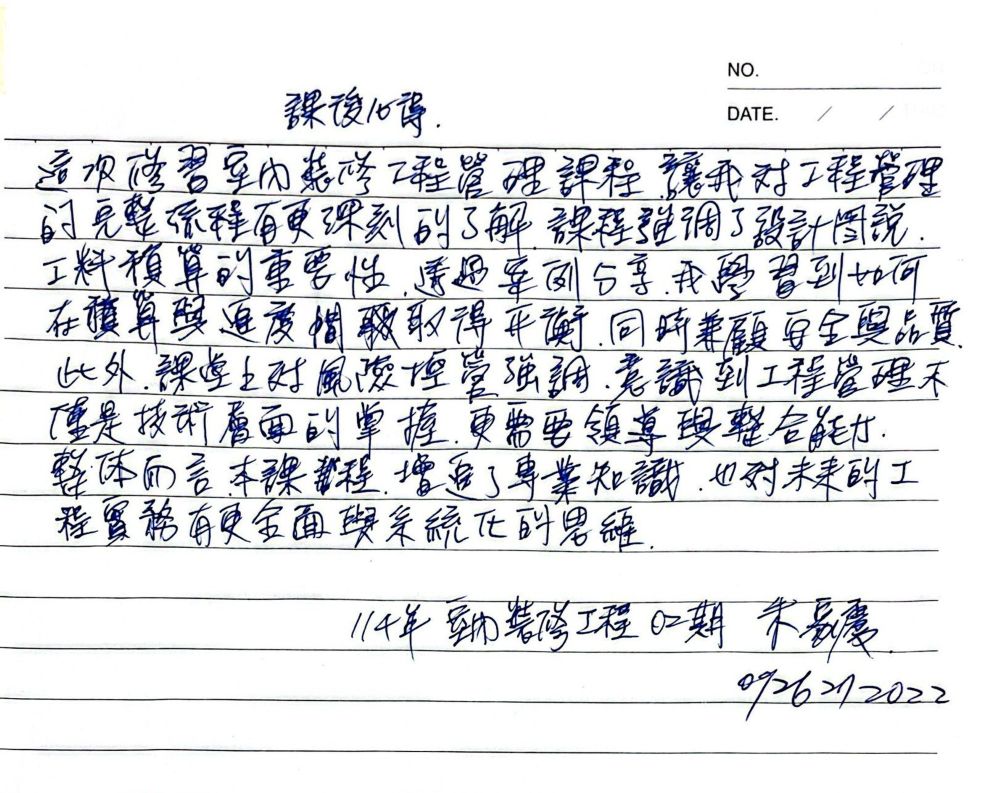 NO.
DATE. / /
課後心得.
這次修習室內裝修工程管理課程,讓我对工程管理
的完整流程有更深刻的了解.課程強調了設計圖說.
工料積算的重要性,透過案例分享.我學習到如何
在積算與進度間取得平衡,同時兼顧安全與品質.
此外,課堂上对風險控管強調,意識到工程管理不
僅是技術層面的掌握,更需要領導與整合能力.
整体而言,本課程,增進了專業知識,也对未來的工
程實務有更全面與系統化的思維.
114年 室內裝修工程 02期 朱